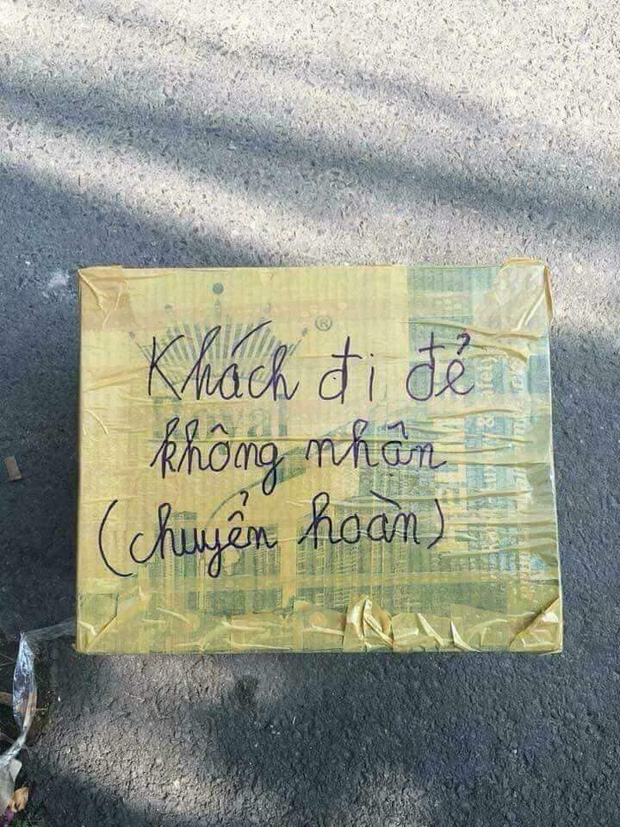 ®
Khách đi đẻ
không nhân
(chuyển hoàn)